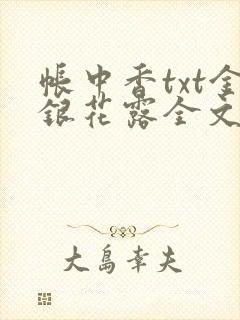 帐中香txt金
银花露全文
大岛幸夫